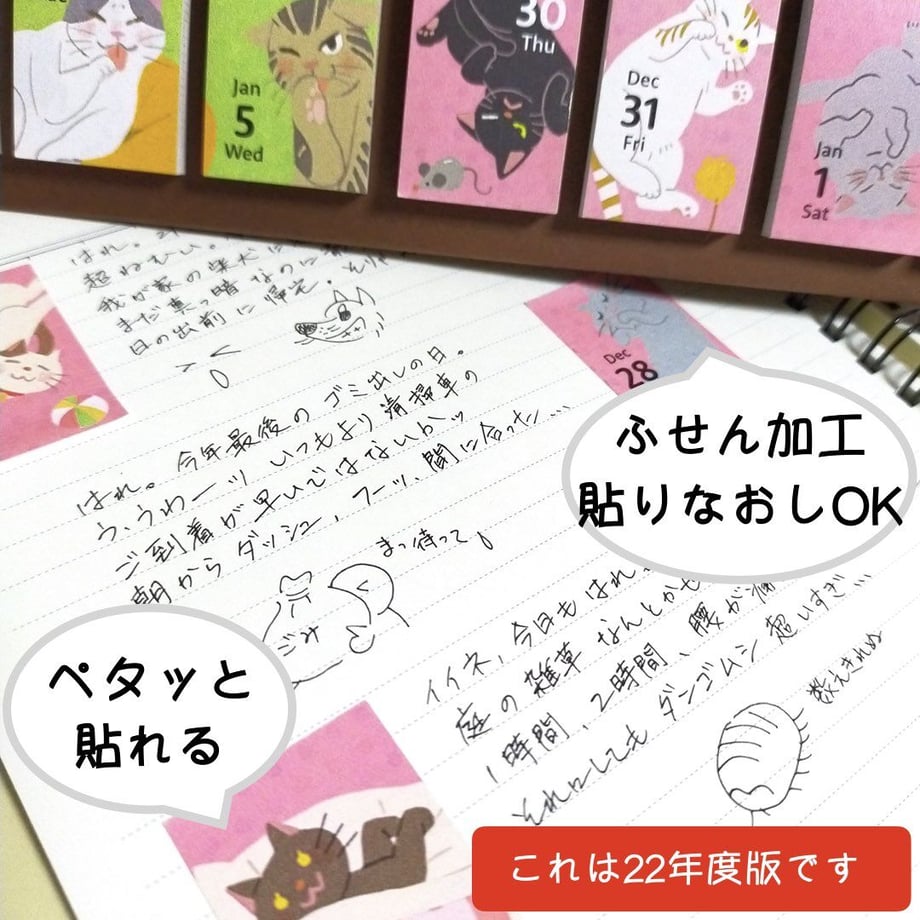 30
Thu
Jan
5
Wed
Dec
31
Fri
Jan
1
Sat
はれ。
超ねむい。
我が家の柴犬に
まだ真っ暗なのに
日の出前に帰宅。
Dec
28
はれ。今年最後のゴミ出しの日。
う、うわーッいつもより清掃車の
ご到着が早いではないかッ
朝からダッシュ、フーッ、間に合った…
まって待って
ごみ
イイネ、今日もはれ。
庭の雑草なんとかも
1時間、2時間、腰が痛
それにしてもダンゴムシ超いすぎ…
数えきれぬ
ふせん加工
貼りなおしOK
ペタッと
貼れる
これは22年度版です